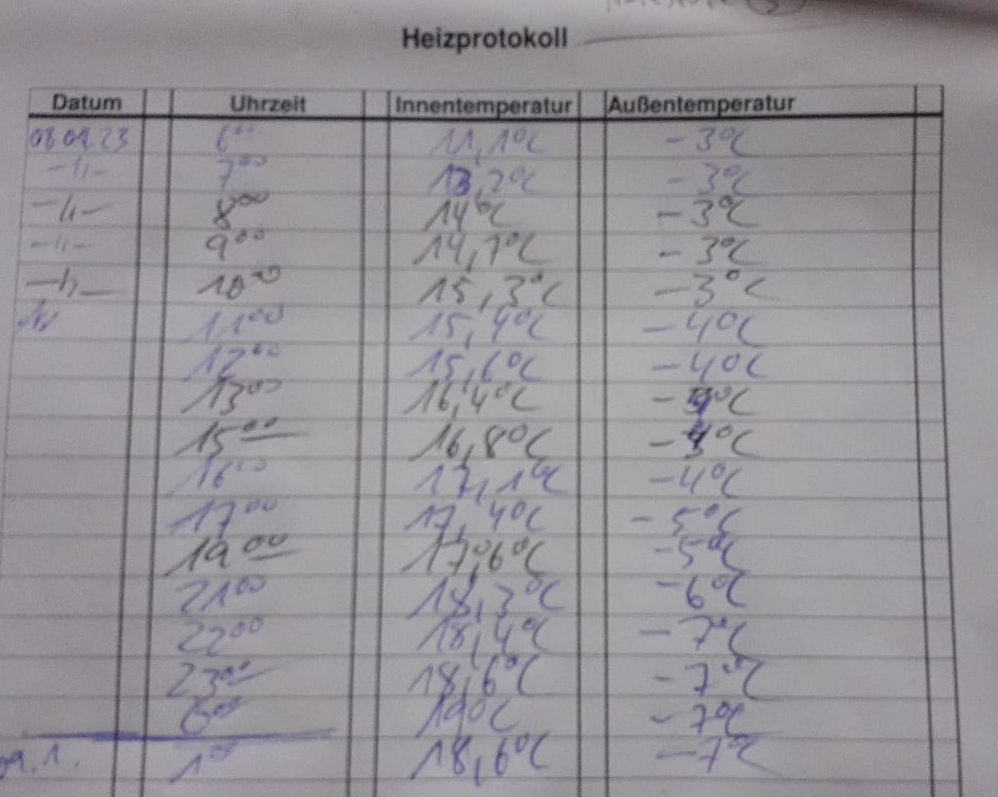 Heizprotokoll
Datum Uhrzeit Innentemperatur Außentemperatur
08.01.23 6⁰⁰ 11,1°C -3°C
-"- 7⁰⁰ 13,2°C -3°C
-"- 8⁰⁰ 14°C -3°C
-"- 9⁰⁰ 14,7°C -3°C
-"- 10⁰⁰ 15,3°C -3°C
11⁰⁰ 15,4°C -4°C
12⁰⁰ 15,6°C -4°C
13⁰⁰ 16,4°C -4°C
15⁰⁰ 16,8°C -4°C
16⁰⁰ 17,1°C -4°C
17⁰⁰ 17,4°C -5°C
19⁰⁰ 17,6°C -5°C
21⁰⁰ 18,3°C -6°C
22⁰⁰ 18,4°C -7°C
23⁰⁰ 18,6°C -7°C
0⁰⁰ 19°C -7°C
09.1. 1⁰⁰ 18,6°C -7°C